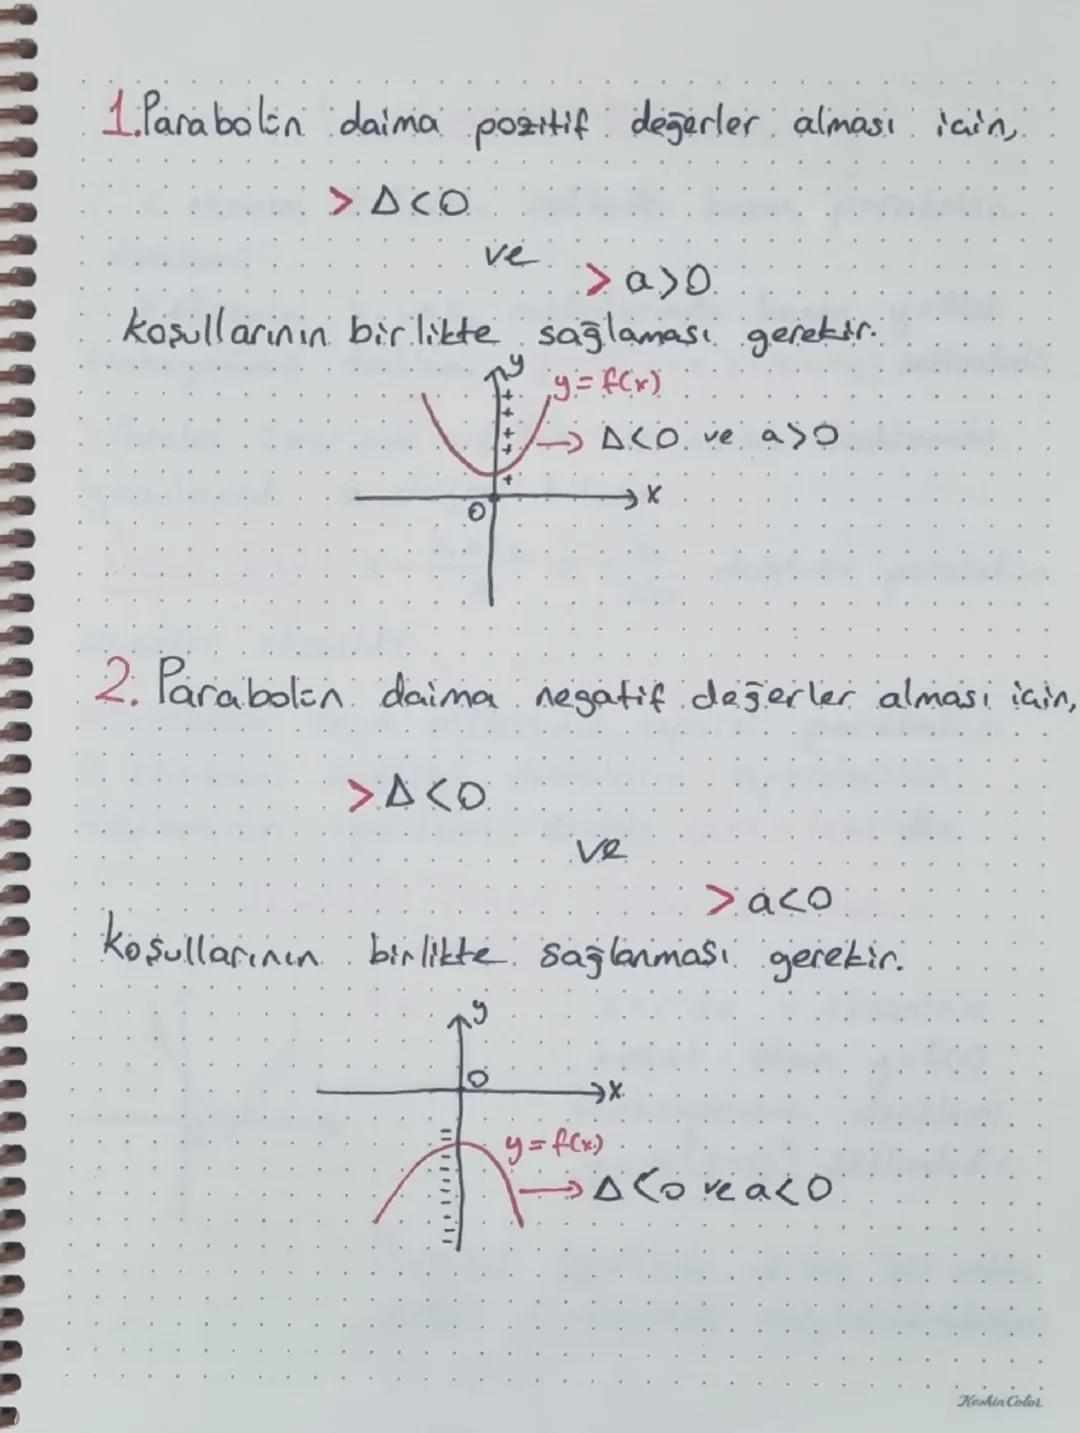 1.Parabolün daima pozitif değerler alması için,
> Δ<0
ve
> a>0
koşullarının birlikte sağlaması gerekir.
y
y=f(x)
→ Δ<0 ve a>0
x
0
2. Parabolün daima negatif değerler alması için,
> Δ<0
ve
> a<0
koşullarının birlikte sağlanması gerekir.
y
0
x
y=f(x)
→ Δ<0 ve a<0
KeskinColor